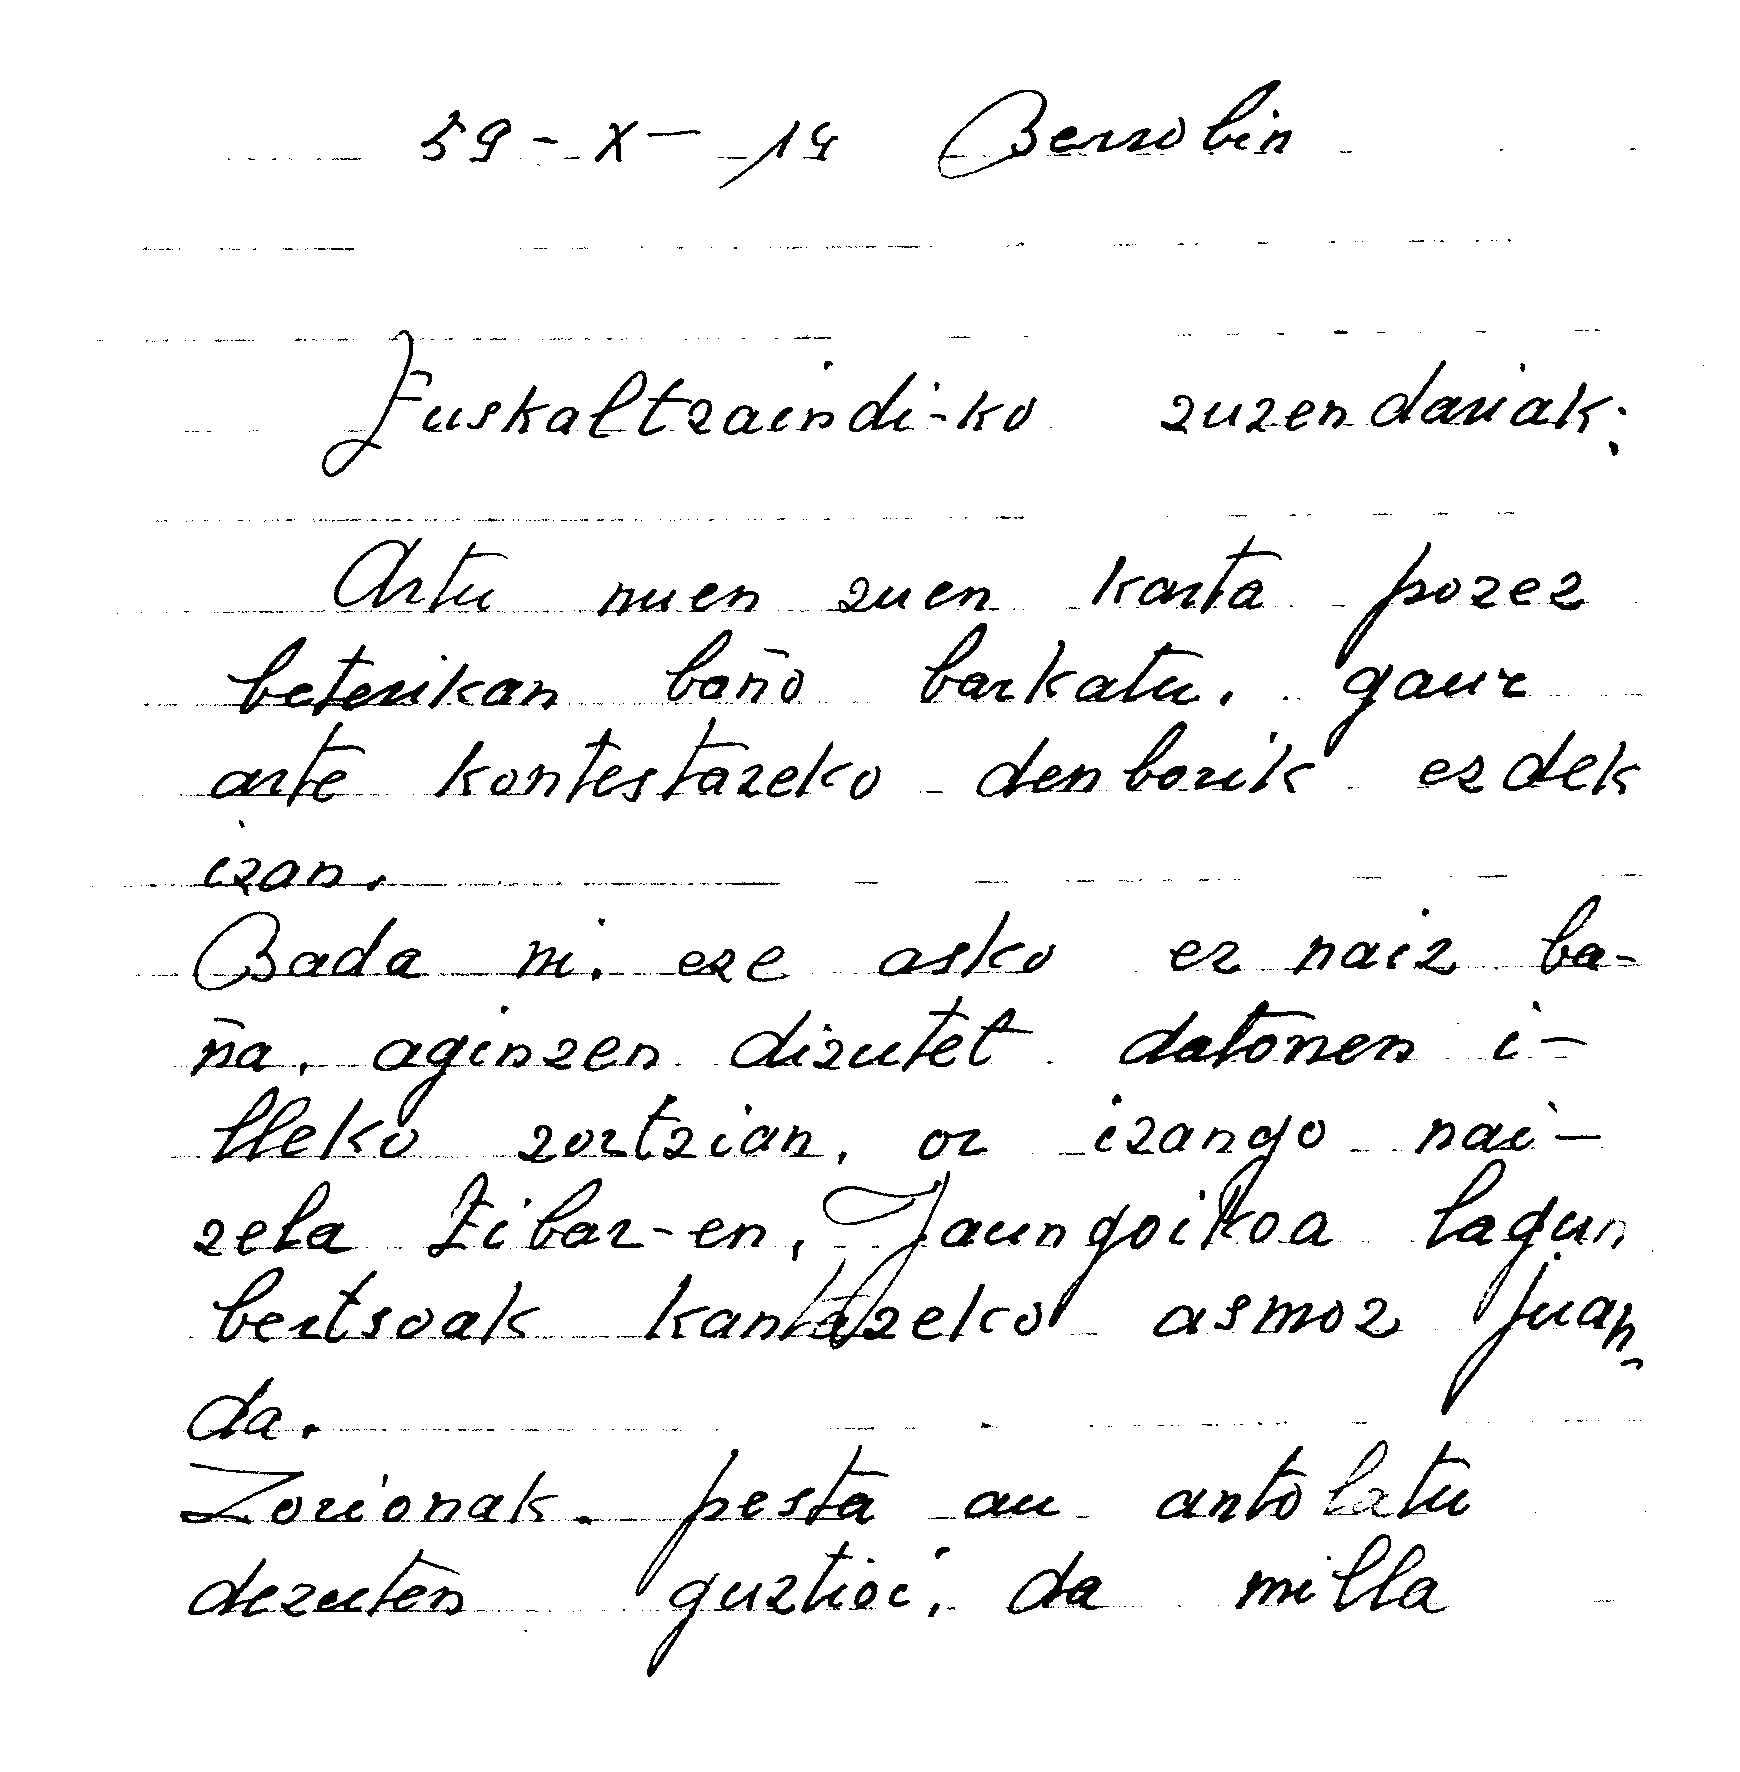 59 - X - 19 Berrobin
Euskaltzaindi-ko zuzendariak:
Artu nuen zuen karta pozez
beterikan baño barkatu, gaur
arte kontestazeko denborik ezdek
izan.
Bada ni, eze asko ez naiz ba-
ña, aginzen dizutet datorren i-
lleko zortzian, or izango nai-
zela Eibar-en, Jaungoikoa lagun
bertsoak kantazeko asmoz juan
da.
Zorionak. pesta au antolatu
dezuten guztioi, da milla